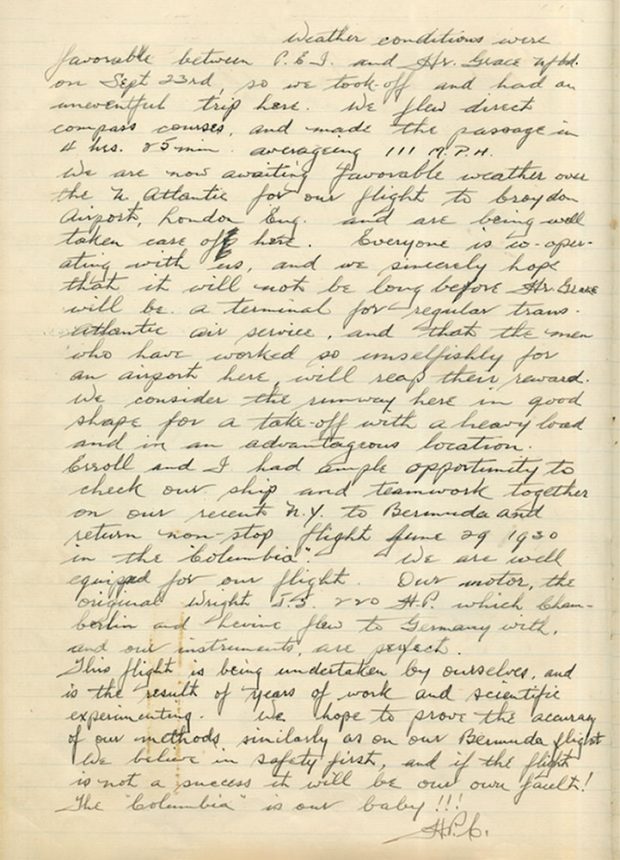 Weather conditions were
favorable between P.E.I. and Hr. Grace Nfld.
on Sept 23rd so we took-off and had an
uneventful trip here. We flew direct
compass courses, and made the passage in
4 hrs. 25 min. averageing 111 M.P.H.
We are now awaiting favorable weather over
the N. Atlantic for our flight to Croydon
Airport, London Eng. and are being well
taken care of here. Everyone is co-oper-
ating with us, and we sincerely hope
that it will not be long before Hr. Grace
will be a terminal for regular trans-
atlantic air service, and that the men
who have worked so unselfishly for
an airport here, will reap their reward.
We consider the runway here in good
shape for a take-off with a heavy load
and in an advantageous location.
Erroll and I had ample opportunity to
check our ship and teamwork together
on our recent N.Y. to Bermuda and
return non-stop flight June 29 1930
in the "Columbia". We are well
equipped for our flight. Our motor, the
original Wright J.5. 220 H.P. which Cham-
berlin and Levine flew to Germany with,
and our instruments, are perfect.
This flight is being undertaken by ourselves, and
is the result of years of work and scientific
experimenting. We hope to prove the accuracy
of our methods similarly as on our Bermuda flight
We believe in safety first, and if the flight
is not a success it will be our own fault!
The "Columbia" is our baby!!!
H.P.C.